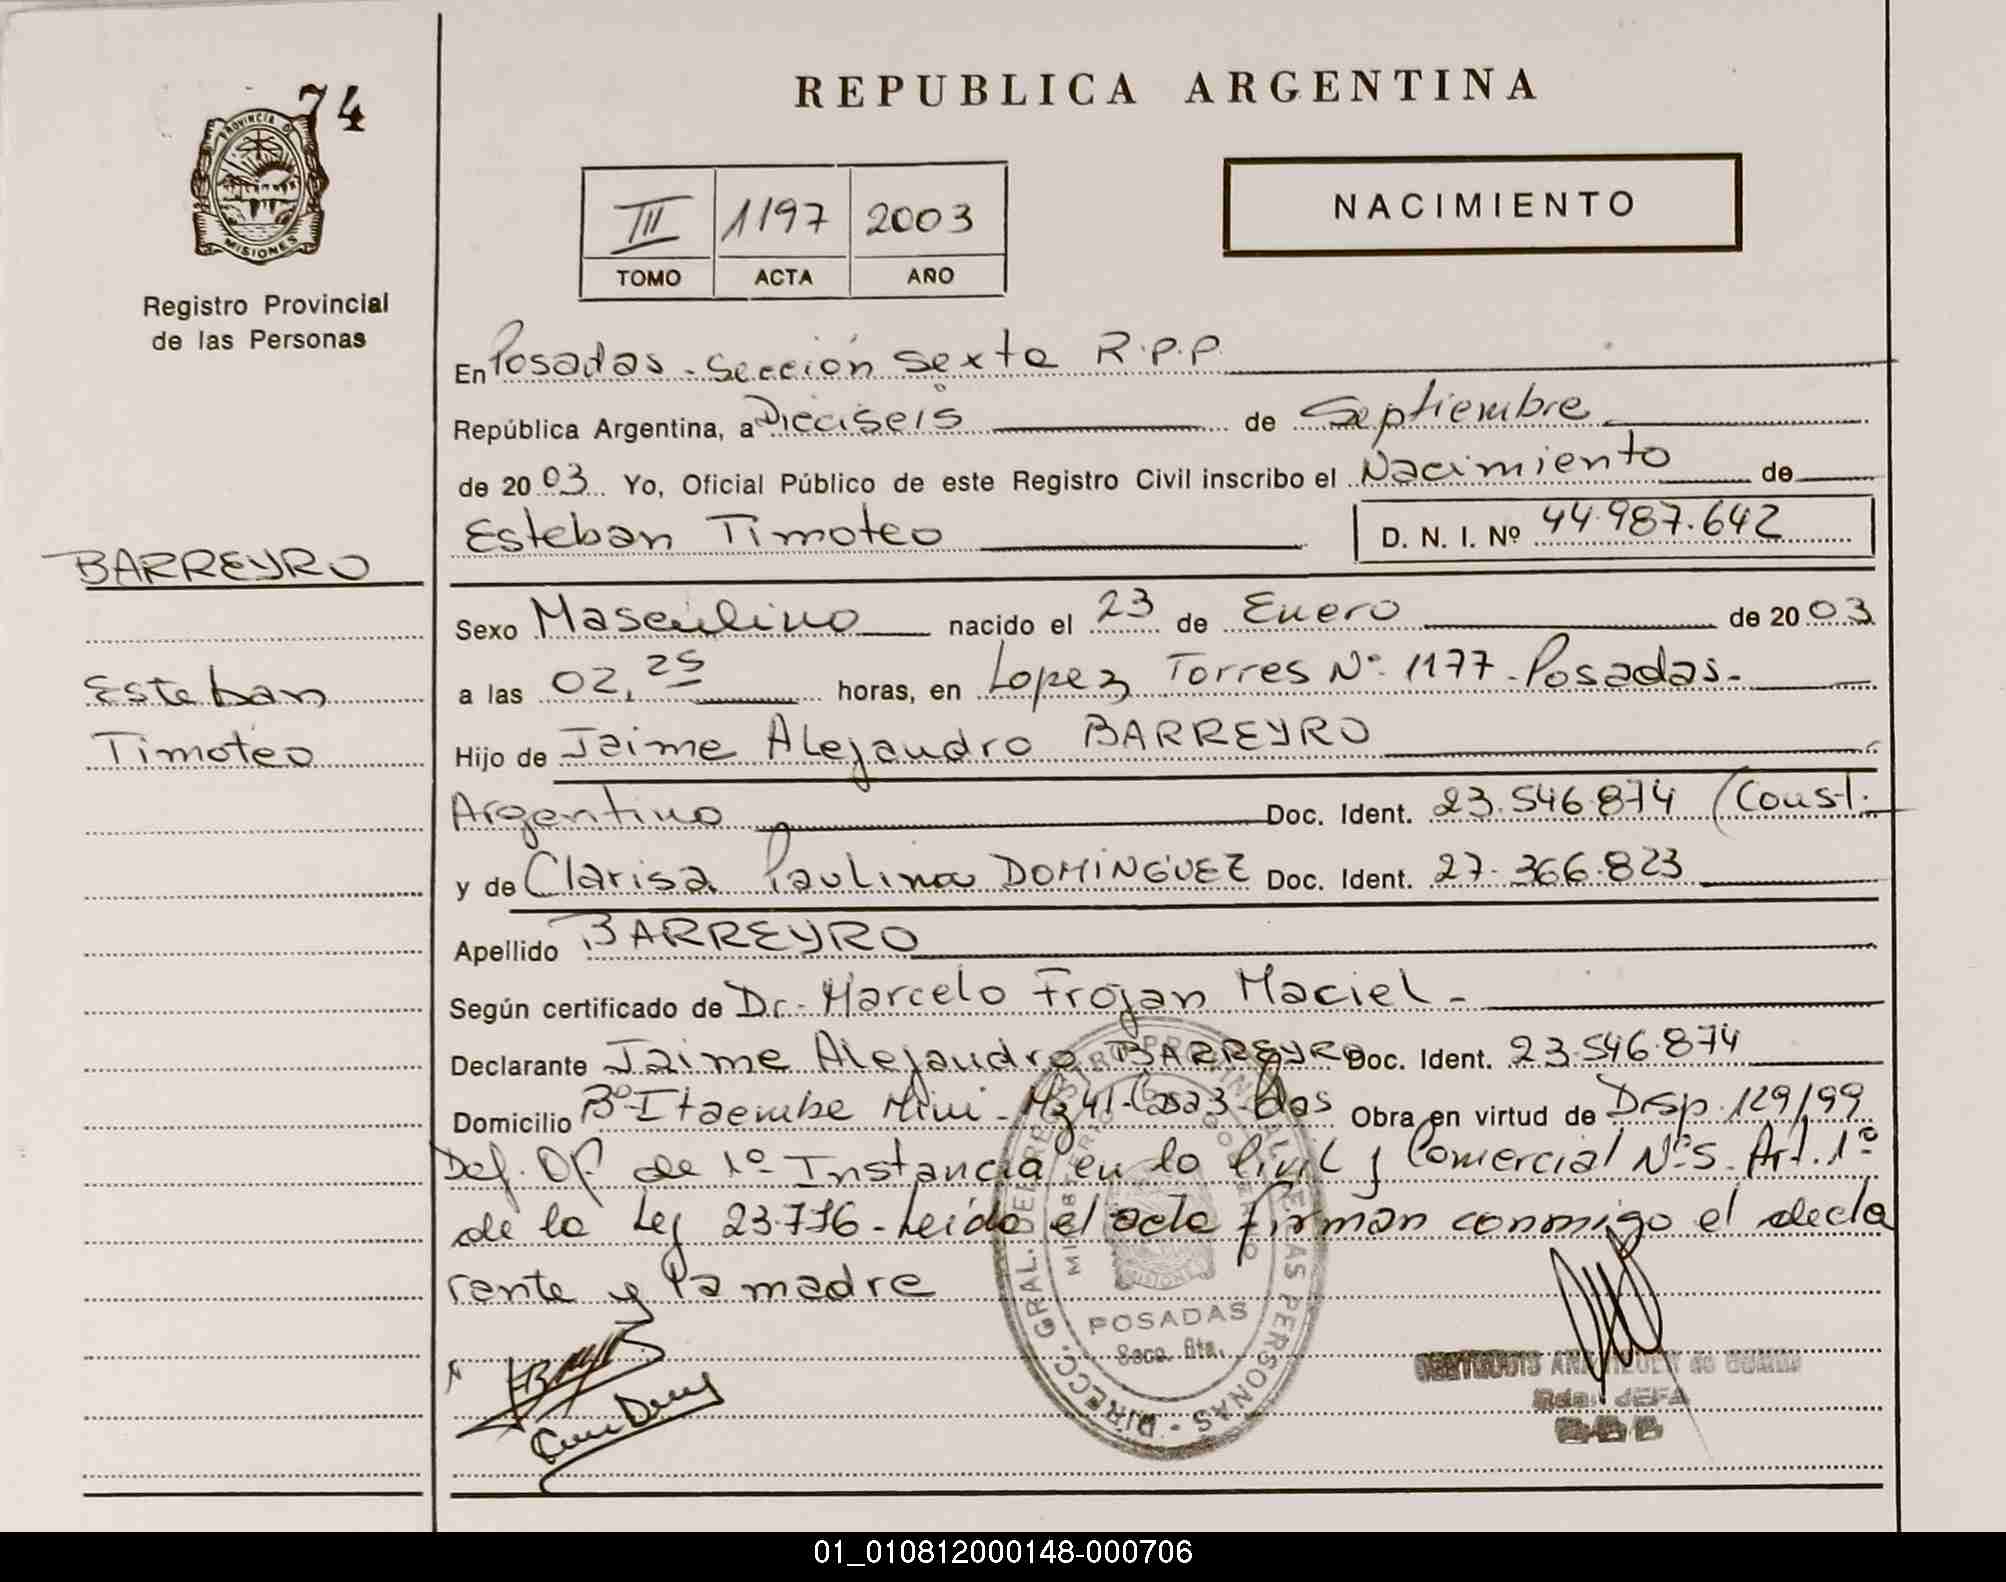 74
REPUBLICA ARGENTINA
PROVINCIA DE
MISIONES
Registro Provincial
de las Personas
III 1197 2003
TOMO ACTA AÑO
NACIMIENTO
En Posadas - Sección Sexta R.P.P.
República Argentina, a Dieciseis de Septiembre
de 2003 Yo, Oficial Público de este Registro Civil inscribo el Nacimiento de
Esteban Timoteo D. N. I. Nº 44.987.642
BARREYRO
Esteban
Timoteo
Sexo Masculino nacido el 23 de Enero de 2003
a las 02,25 horas, en Lopez Torres Nº 1177 - Posadas -
Hijo de Jaime Alejandro BARREYRO
Argentino Doc. Ident. 23.546.874 (Const.
y de Clarisa Paulina DOMINGUEZ Doc. Ident. 27.366.823
Apellido BARREYRO
Según certificado de Dr. Marcelo Frojan Maciel -
Declarante Jaime Alejandro BARREYRO Doc. Ident. 23.546.874
Domicilio Bº Itaembe Mini - Mz 41 - Casa 3 - Pdas Obra en virtud de Disp. 129/99
Def. Of. de 1º Instancia en lo Civil y Comercial Nº 5. Art. 1º
de la Ley 23.776 - Leída el acta firman conmigo el decla
rante y la madre
DIRECC. GRAL. DEL REGISTRO PROVINCIAL DE LAS PERSONAS
MINISTERIO DE GOBIERNO
MISIONES
POSADAS
Secc. 6ta.
JEFA
01_010812000148-000706